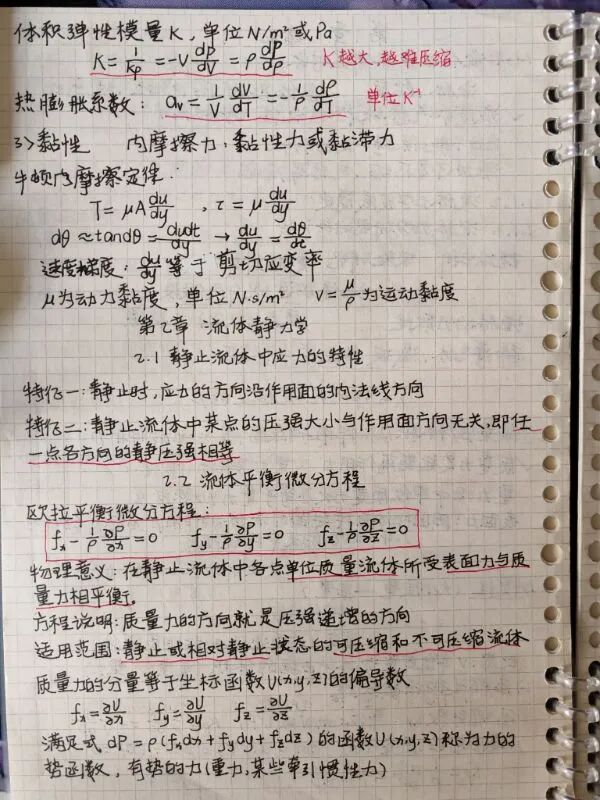 体积弹性模量K,单位N/m²或Pa
K=1/kp=-V dp/dV=ρ dp/dρ K越大,越难压缩
热膨胀系数: αv=1/V dV/dT=-1/ρ dρ/dT 单位K⁻¹
3>黏性 内摩擦力、黏性力或黏滞力
牛顿内摩擦定律:
T=μA du/dy ,τ=μ du/dy
dθ≈tandθ=dudt/dy→du/dy=dθ/dt
速度梯度:du/dy等于剪切应变率
μ为动力黏度,单位N·s/m² ν=μ/ρ为运动黏度
第2章 流体静力学
2.1 静止流体中应力的特性
特征一:静止时,应力的方向沿作用面的内法线方向
特征二:静止流体中某点的压强大小与作用面方向无关,即任
一点各方向的静压强相等
2.2 流体平衡微分方程
欧拉平衡微分方程:
fx-1/ρ ∂P/∂x=0 fy-1/ρ ∂P/∂y=0 fz-1/ρ ∂P/∂z=0
物理意义:在静止流体中各点单位质量流体所受表面力与质
量力相平衡.
方程说明:质量力的方向就是压强递增的方向
适用范围:静止或相对静止状态的可压缩和不可压缩流体
质量力的分量等于坐标函数U(x,y,z)的偏导数
fx=∂U/∂x fy=∂U/∂y fz=∂U/∂z
满足式dP=ρ(fxdx+fydy+fzdz)的函数U(x,y,z)称为力的
势函数,有势的力(重力,某些牵引惯性力)